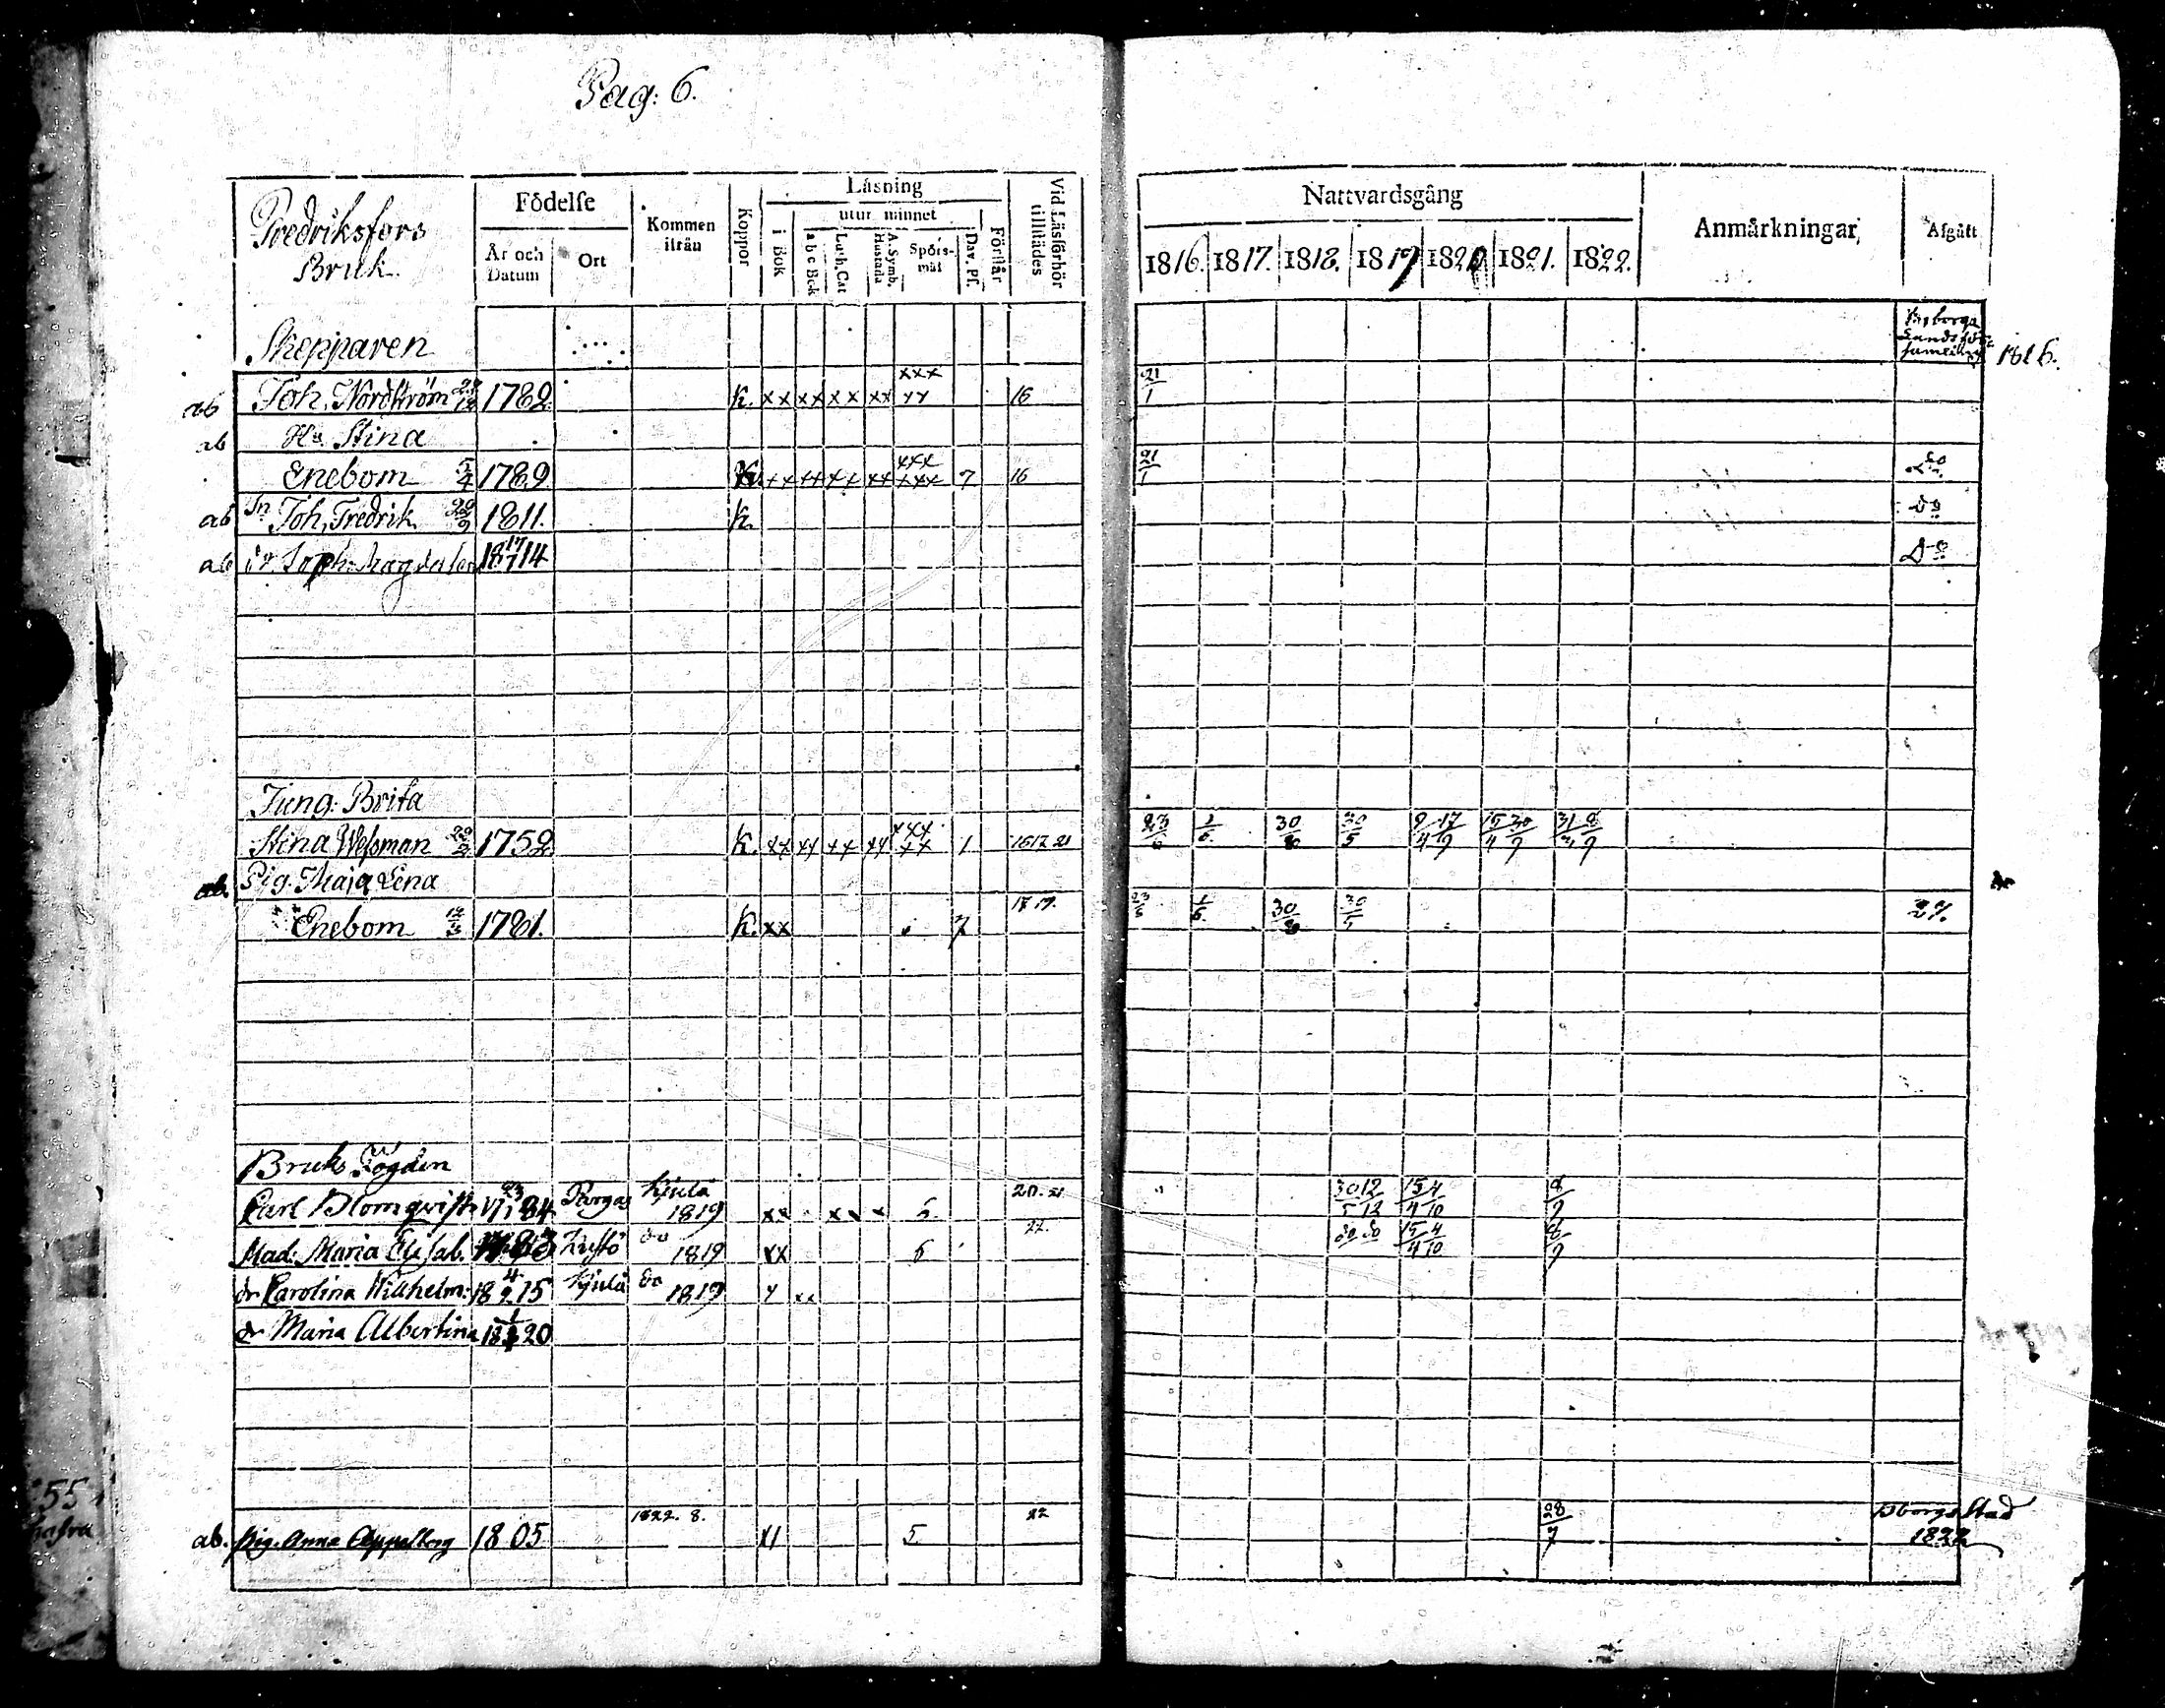 Pag: 6.
Fredriksfors
Bruk.
Födelse
År och Datum
Ort
Kommen ifrån
Koppor
Läsning
i Bok
utur minnet
a b c Bok
Luth. Cat
A. Symb. Hustafla
Spörs-mål
Dav. Ps.
Förstår
Vid Läsförhör tillstädes
Nattvardsgång
1816. 1817. 1818. 1819 1820 1821. 1822.
Anmärkningar
Afgått
Skepparen 1816.
ab Joh. Nordström 1782 K. xx xx xx xx xxx xx 16 21/1
ab Hu Stina
Enebom 5/4 1789 K. xx xx xx xx xxx xxx 7 16 21/1 Do
ab Sn Joh. Fredrik 1811. K. Do
ab dr Soph: Magdalen 18 17/7 14 Do
Jung. Brita
Stina Wessman 1752 K. xx xx xx xx xxx xx 1 16 17 21 30/8 30/5 9/4 17/9 15/4 30/9 8/9
ab. Pig. Maja Lena
Enebom 1781. K. xx 7 17 19. 30/8 30/5
Bruks Fogden
Carl Blomqvist 17 23/1 84 Pargas Kjula 1819 xx xx x 5. 20. 21 30/5 12/12 15/4 4/10 8/9
Mad: Maria Elisab. Kustö do 1819 xx 6 22. do do 15/4 4/10 8/9
dr Carolina Wilhelm: 18 4/9 15 Kjula do 1819 x xx
dr Maria Albertina 18 20
55
ab. Pig. Anna Appelberg 1805 1822. 8. x1 5 22 28/7 Åborgs Stad
1822